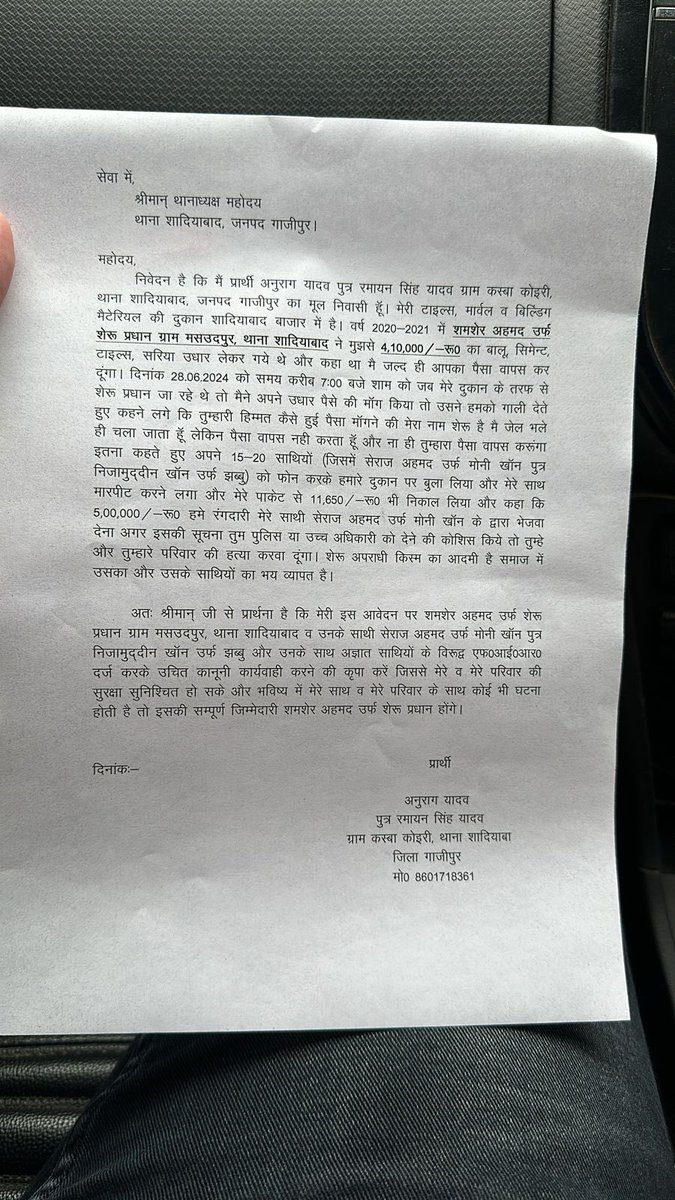 सेवा में,
श्रीमान् थानाध्यक्ष महोदय
थाना शादियाबाद, जनपद गाजीपुर।
महोदय,
निवेदन है कि मैं प्रार्थी अनुराग यादव पुत्र रमायन सिंह यादव ग्राम कस्बा कोइरी,
थाना शादियाबाद, जनपद गाजीपुर का मूल निवासी हूँ। मेरी टाइल्स, मार्वल व बिल्डिंग
मैटेरियल की दुकान शादियाबाद बाजार में है। वर्ष 2020–2021 में शमशेर अहमद उर्फ
शेरू प्रधान ग्राम मसउदपुर, थाना शादियाबाद ने मुझसे 4,10,000/–रू0 का बालू, सिमेन्ट,
टाइल्स, सरिया उधार लेकर गये थे और कहा था मै जल्द ही आपका पैसा वापस कर
दूंगा। दिनांक 28.06.2024 को समय करीब 7:00 बजे शाम को जब मेरे दुकान के तरफ से
शेरू प्रधान जा रहे थे तो मैने अपने उधार पैसे की मॉग किया तो उसने हमको गाली देते
हुए कहने लगे कि तुम्हारी हिम्मत कैसे हुई पैसा मॉगने की मेरा नाम शेरू है मै जेल भले
ही चला जाता हूँ लेकिन पैसा वापस नही करता हूँ और ना ही तुम्हारा पैसा वापस करूंगा
इतना कहते हुए अपने 15–20 साथियों (जिसमें सेराज अहमद उर्फ मोनी खॉन पुत्र
निजामुद्दीन खॉन उर्फ झब्बु) को फोन करके हमारे दुकान पर बुला लिया और मेरे साथ
मारपीट करने लगा और मेरे पाकेट से 11,650/–रू0 भी निकाल लिया और कहा कि
5,00,000/–रू0 हमे रंगदारी मेरे साथी सेराज अहमद उर्फ मोनी खॉन के द्वारा भेजवा
देना अगर इसकी सूचना तुम पुलिस या उच्च अधिकारी को देने की कोशिस किये तो तुम्हे
और तुम्हारे परिवार की हत्या करवा दूंगा। शेरू अपराधी किस्म का आदमी है समाज में
उसका और उसके साथियों का भय व्याप्त है।
अतः श्रीमान् जी से प्रार्थना है कि मेरी इस आवेदन पर शमशेर अहमद उर्फ शेरू
प्रधान ग्राम मसउदपुर, थाना शादियाबाद व उनके साथी सेराज अहमद उर्फ मोनी खॉन पुत्र
निजामुद्दीन खॉन उर्फ झब्बु और उनके साथ अज्ञात साथियों के विरूद्व एफ0आई0आर0
दर्ज करके उचित कानूनी कार्यवाही करने की कृपा करें जिससे मेरे व मेरे परिवार की
सुरक्षा सुनिश्चित हो सके और भविष्य में मेरे साथ व मेरे परिवार के साथ कोई भी घटना
होती है तो इसकी सम्पूर्ण जिम्मेदारी शमशेर अहमद उर्फ शेरू प्रधान होंगे।
दिनांकः– प्रार्थी
अनुराग यादव
पुत्र रमायन सिंह यादव
ग्राम कस्बा कोइरी, थाना शादियाबा
जिला गाजीपुर
मो0 8601718361